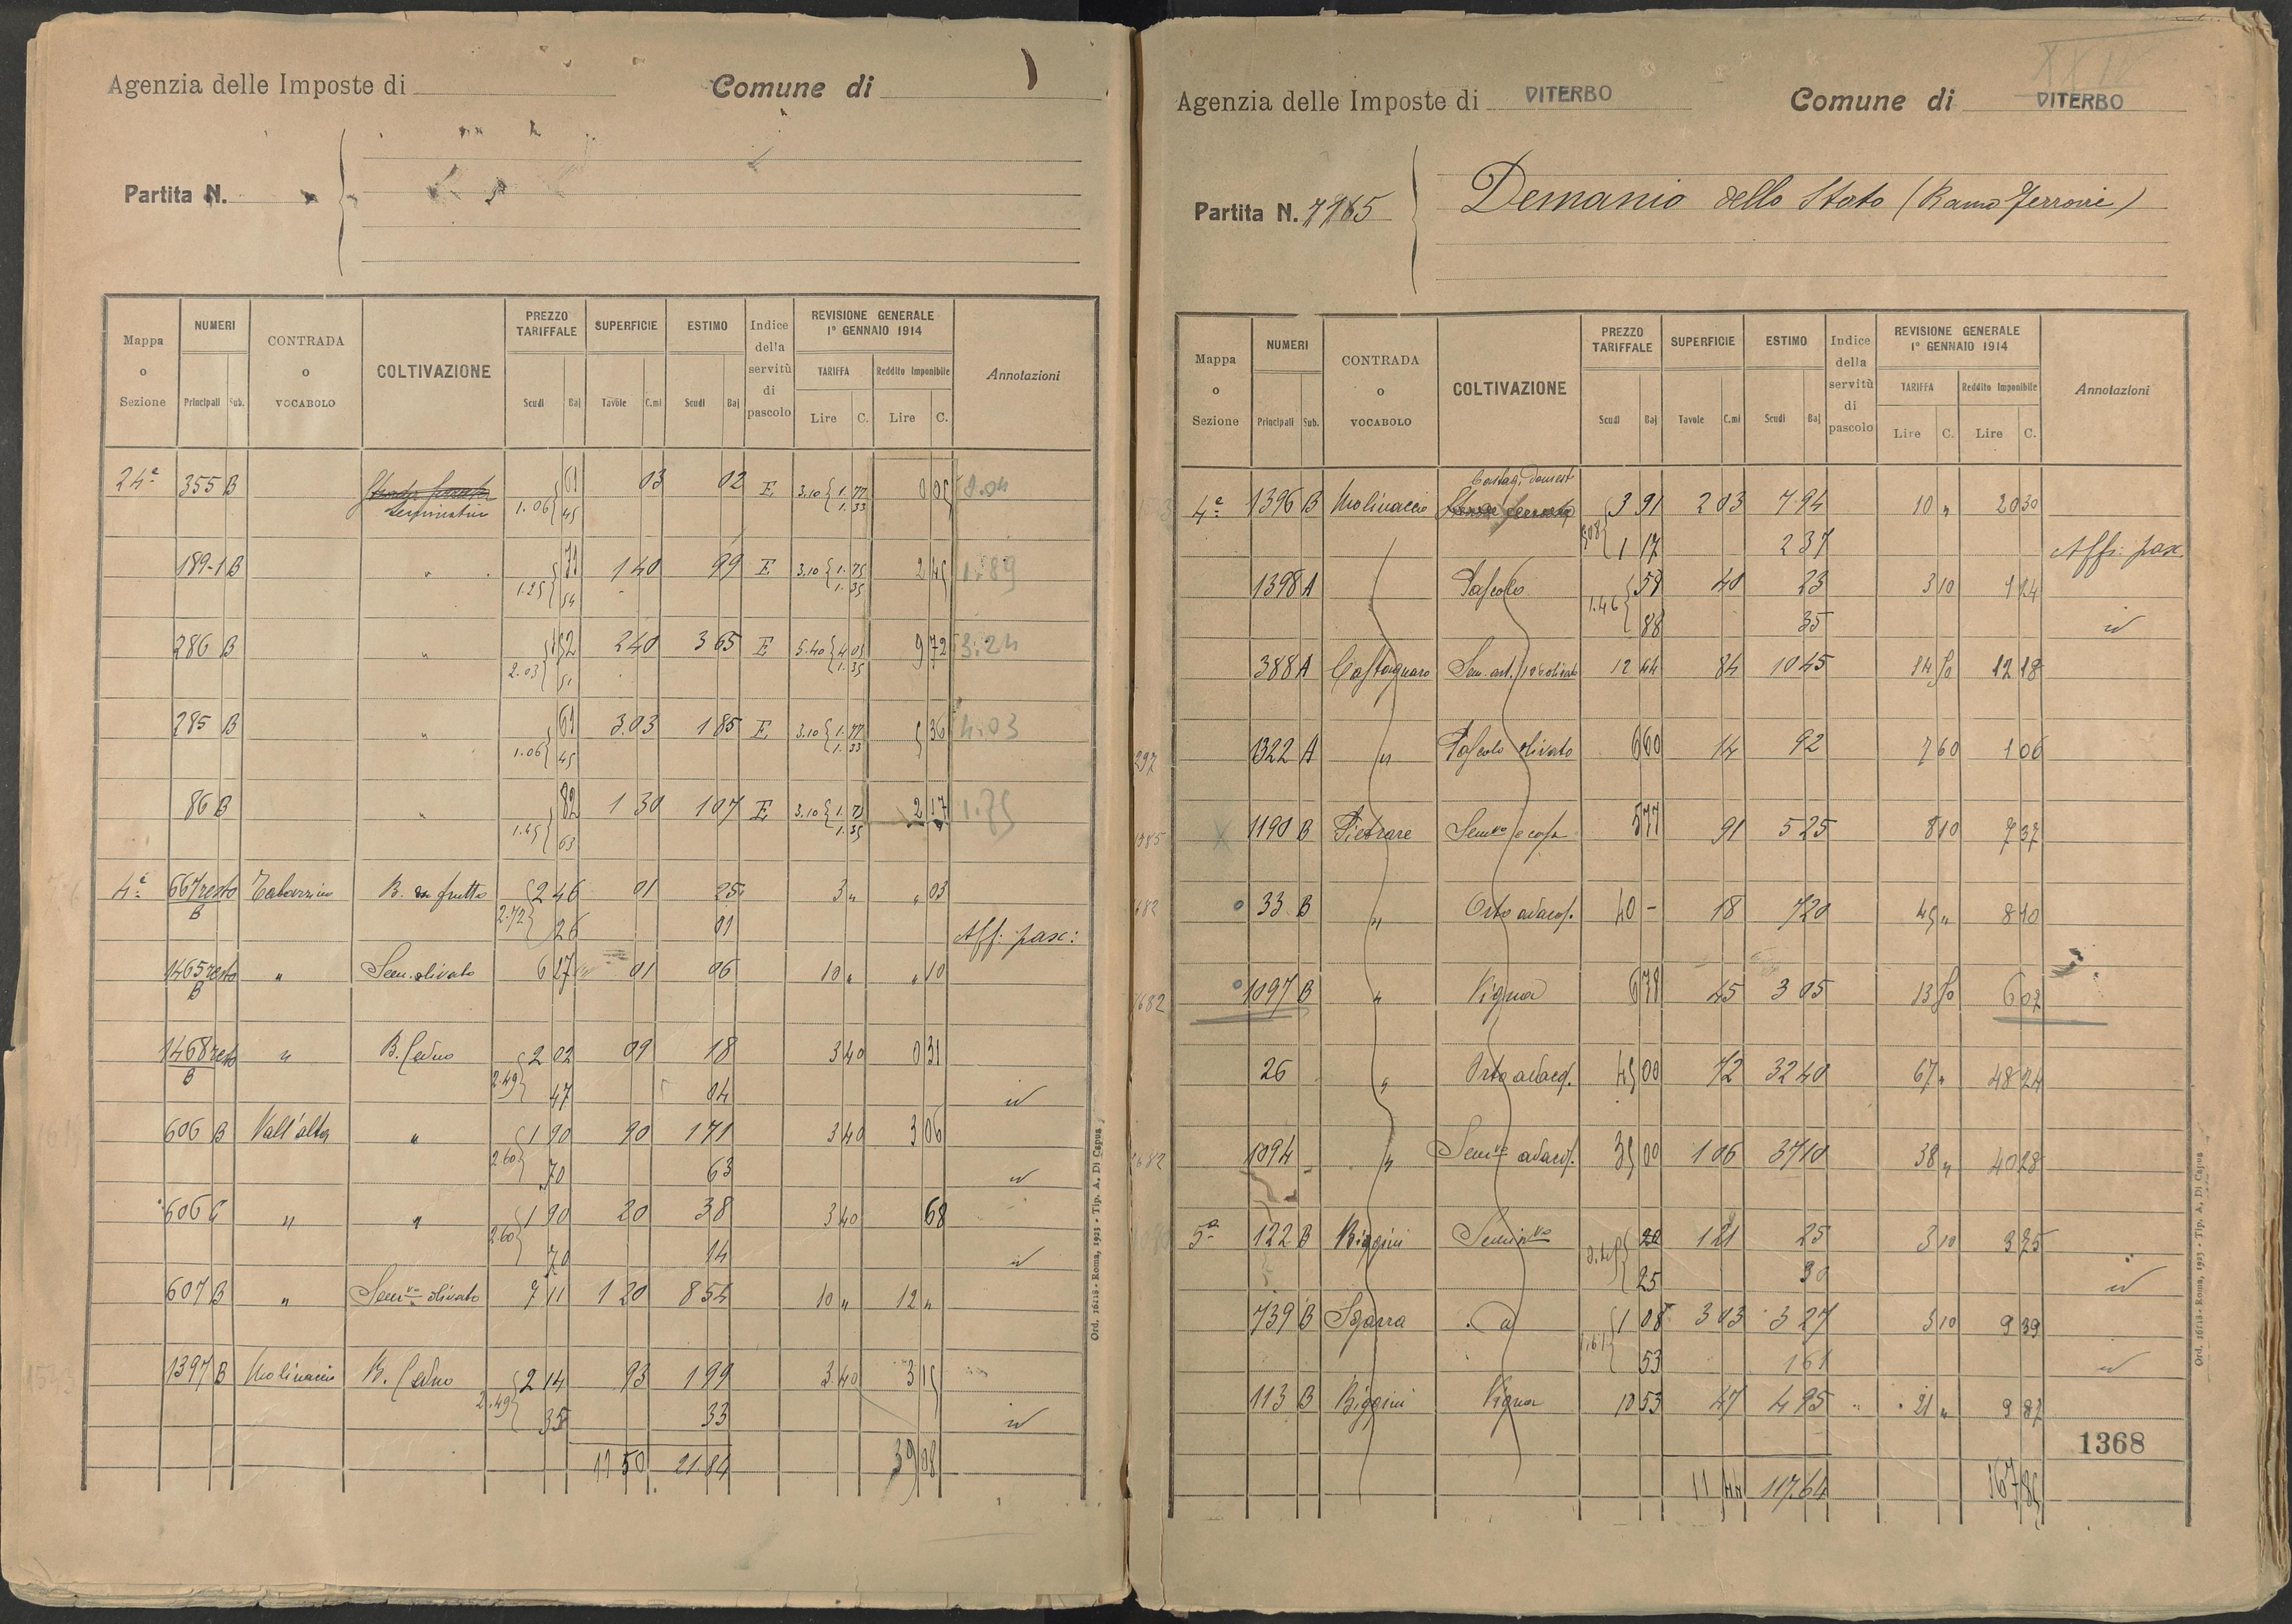 Agenzia delle Imposte di Comune di
Partita N.
Mappa o Sezione NUMERI Principali Sub. CONTRADA o VOCABOLO COLTIVAZIONE PREZZO TARIFFALE Scudi Baj SUPERFICIE Tavole C.mi ESTIMO Scudi Baj Indice della servitù di pascolo REVISIONE GENERALE 1° GENNAIO 1914 TARIFFA Lire C. Reddito Imponibile Lire C. Annotazioni
24ª 355 B 61 03 02 E 3.10 1.77
Seminativo 1.06 45 1.33
189-1 B " 71 1 40 99 E 3.10 1.75 2 45 1.89
1.25 54 1.35
286 B " 1 52 2 40 3 65 E 5.40 4.05 9 72 3.24
2.03 51 1.35
285 B " 61 3.03 1 85 E 3.10 1.77 5 36 4.03
1.06 45 1.33
86 B " 82 1 30 1 07 E 3.10 2 17 1.75
1.45 63 1.35
4ª 667 resto B B. da frutto 2 46 01 25 3 " " 03
2.72 26 01 Aff: pasc:
1465 resto B " Sem. olivato 6 27 01 06 10 " " 10
1468 resto B " B. Ceduo 2 02 09 18 3 40 0 31
2.49 47 04 id
606 B Vall'alta " 1 90 90 1 71 3 40 3 06
2.60 70 63 id
606 C " " 1 90 20 38 3 40 68
2.60 70 14 id
607 B " Sem.vo olivato 7 11 1 20 8 54 10 " 12 "
1397 B Molinaccio B. Ceduo 2 14 93 1 99 3.40 3 15
2.49 35 33 id
11 50 21.84 39 08
Ord. 16118 - Roma, 1923 - Tip. A. Di Capua
Agenzia delle Imposte di VITERBO Comune di VITERBO
Partita N. 7965 Demanio dello Stato (Ramo Ferrovie)
Mappa o Sezione NUMERI Principali Sub. CONTRADA o VOCABOLO COLTIVAZIONE PREZZO TARIFFALE Scudi Baj SUPERFICIE Tavole C.mi ESTIMO Scudi Baj Indice della servitù di pascolo REVISIONE GENERALE 1° GENNAIO 1914 TARIFFA Lire C. Reddito Imponibile Lire C. Annotazioni
4ª 1396 B Molinaccio Castag. domest 3 91 2 03 7 94 10 " 20 30
5 08 1 17 2 37 Aff: pasc.
1398 A Pascolo 58 40 23 3 10 1 24
1.46 88 35 id
388 A Castagnaro 12 44 84 10 45 14 50 12 18
1322 A " Pascolo olivato 6 60 14 92 7 60 1 06
1190 B Pietrare 5 77 91 5 25 8 10 7 37
33 B " Orto adacq. 40 - 18 7 20 45 " 8 10
1097 B " Vigna 6 78 45 3 05 13 50 6 07
26 " Orto adacq. 45 00 72 32 40 67 " 48 24
1094 " Sem.vo adacq. 35 00 1 06 37 10 38 " 40 28
5ª 122 B Seminvo 1 21 25 3 10 3 75
25 30 id
739 B 1 08 3 03 3 27 3 10 9 39
1.61 53 1 61 id
113 B Vigna 10 53 47 4 95 21 " 9 87
1368
11 44 117.64 167 85
Ord. 16118 - Roma, 1923 - Tip. A. Di Capua